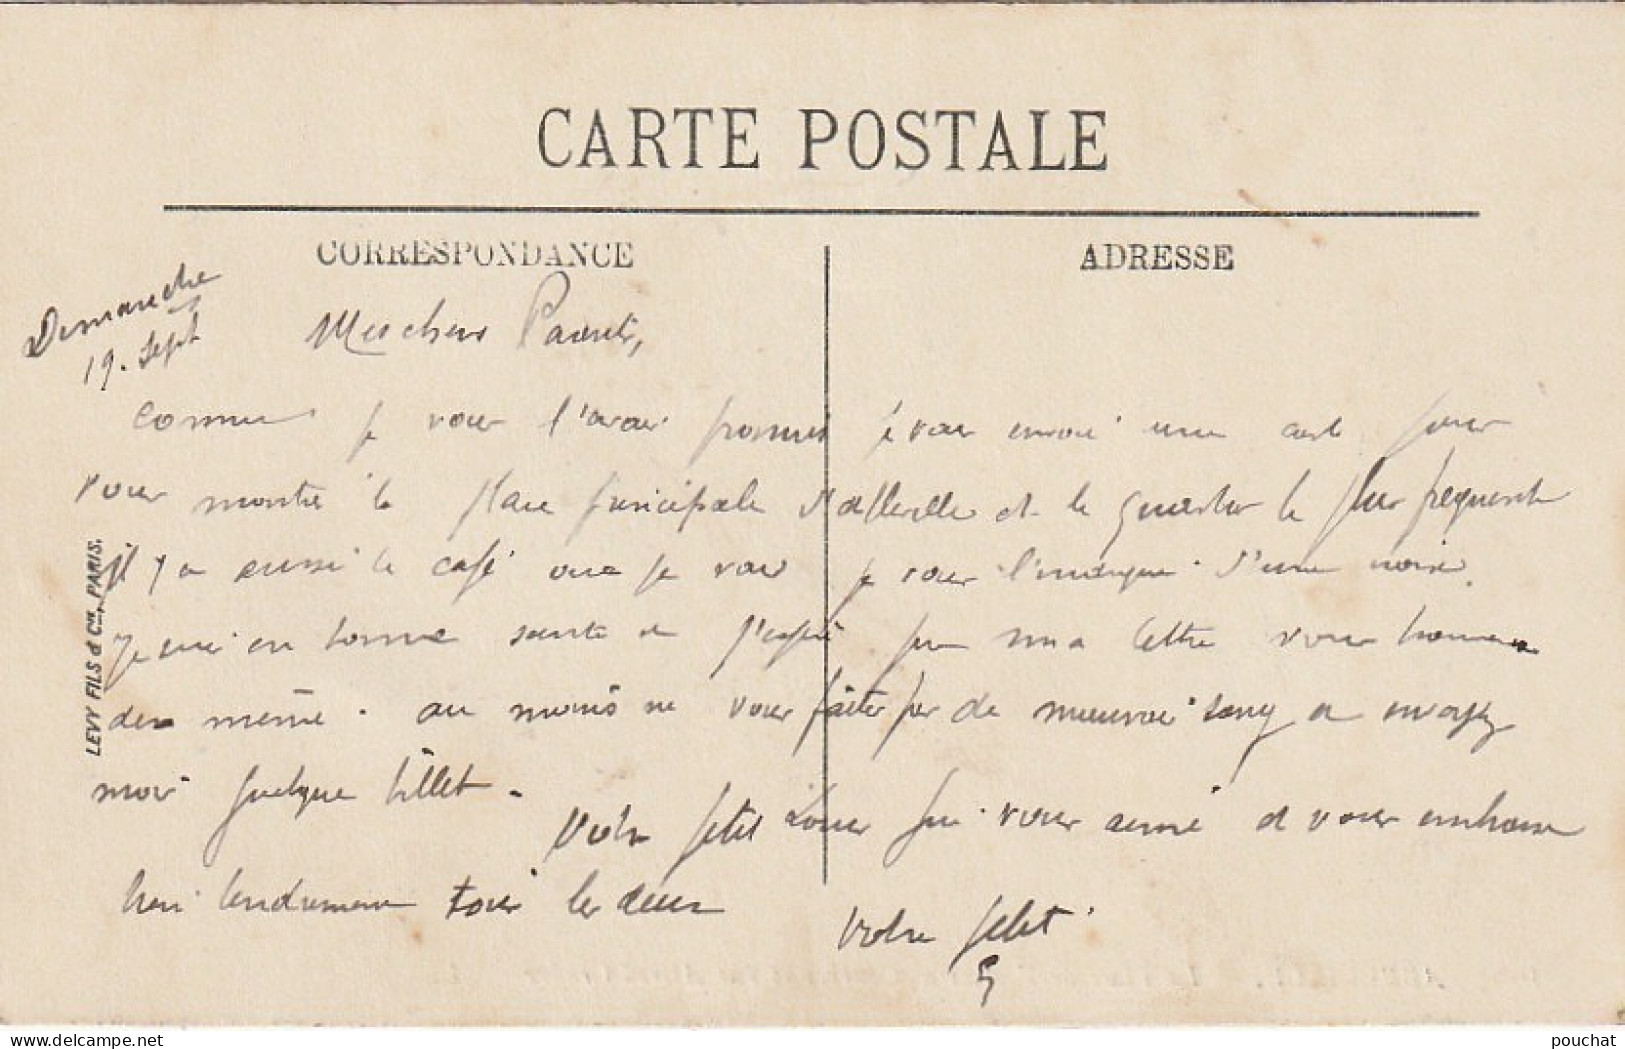 CARTE POSTALE
CORRESPONDANCE
ADRESSE
Dimanche
19. Sept
Mes chers Parents,
comme je vous l'avai promis je vous envoi une carte pour
vous montre la place principale d'abbeville et le quartier le plus frequente
il y a aussi le café que je vous je vous l'marque d'une croix.
je sui en bonne sante et j'espère que ma lettre vous
de même. au moins ne vous faite pas de mauvai sang
moi quelque billet.
Votre petit qui vous aime et vous embrasse
bien tendrement tous les deux
Votre petit
LEVY FILS & Cie, PARIS.
pouchat